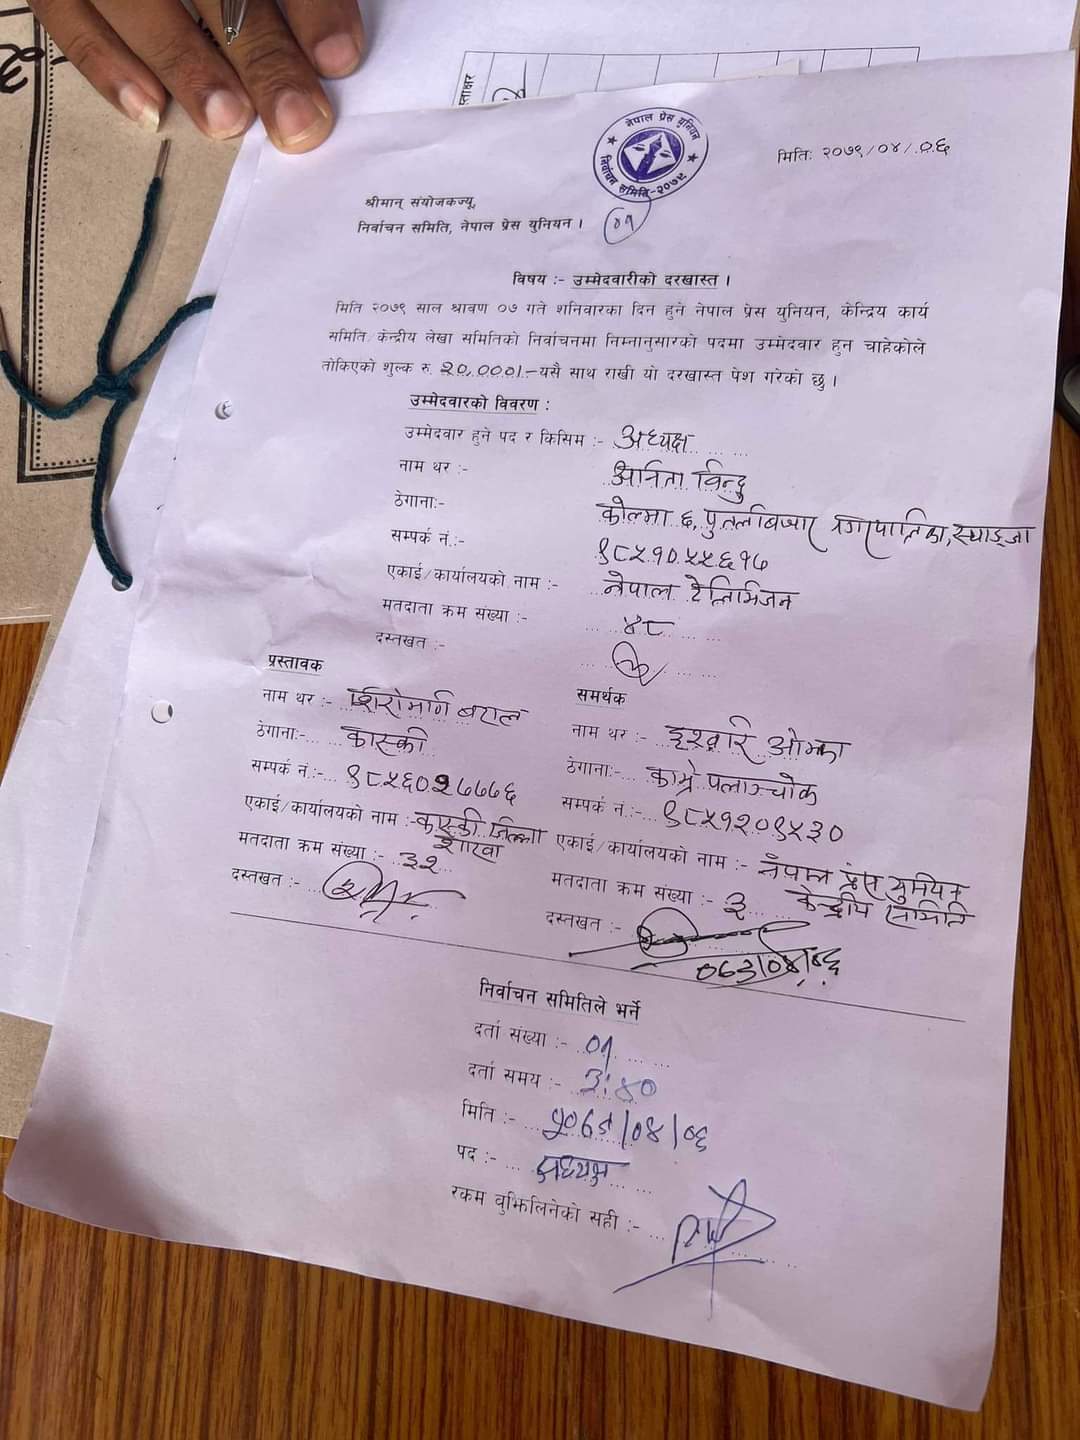 स्ताक्षर
नेपाल प्रेस युनियन
निर्वाचन समिति-२०७९
मिति: २०७९/०४/०६
श्रीमान् संयोजकज्यू,
निर्वाचन समिति, नेपाल प्रेस युनियन ।
०१
विषय :- उम्मेदवारीको दरखास्त ।
मिति २०७९ साल श्रावण ०७ गते शनिवारका दिन हुने नेपाल प्रेस युनियन, केन्द्रिय कार्य
समिति/केन्द्रीय लेखा समितिको निर्वाचनमा निम्नानुसारको पदमा उम्मेदवार हुन चाहेकोले
तोकिएको शुल्क रु. २०,०००।- यसै साथ राखी यो दरखास्त पेश गरेको छु ।
उम्मेदवारको विवरण :
उम्मेदवार हुने पद र किसिम :- अध्यक्ष
नाम थर :- अनिता विन्दु
ठेगाना:- कोल्मा ६, पुतलीबजार नगरपालिका, स्याङ्जा
सम्पर्क नं.:- ९८५१०५५६१७
एकाई/कार्यालयको नाम :- नेपाल टेलिभिजन
मतदाता क्रम संख्या :- ४८
दस्तखत :-
प्रस्तावक
नाम थर :- शिरोमणि बराल
ठेगाना:- कास्की
सम्पर्क नं.:- ९८५६०२७७७६
एकाई/कार्यालयको नाम :- कास्की जिल्ला शाखा
मतदाता क्रम संख्या :- ३२
दस्तखत :-
समर्थक
नाम थर :- इश्वरि ओझा
ठेगाना:- काभ्रे पलाञ्चोक
सम्पर्क नं.:- ९८५१२०९५३०
एकाई/कार्यालयको नाम :- नेपाल प्रेस युनियन
केन्द्रीय समिति
मतदाता क्रम संख्या :- ३
दस्तखत :-
निर्वाचन समितिले भर्ने
दर्ता संख्या :- ०१
दर्ता समय :- ३:४०
मिति :- २०७९/०४/०६
पद :- अध्यक्ष
रकम वुझिलिनेको सही :-